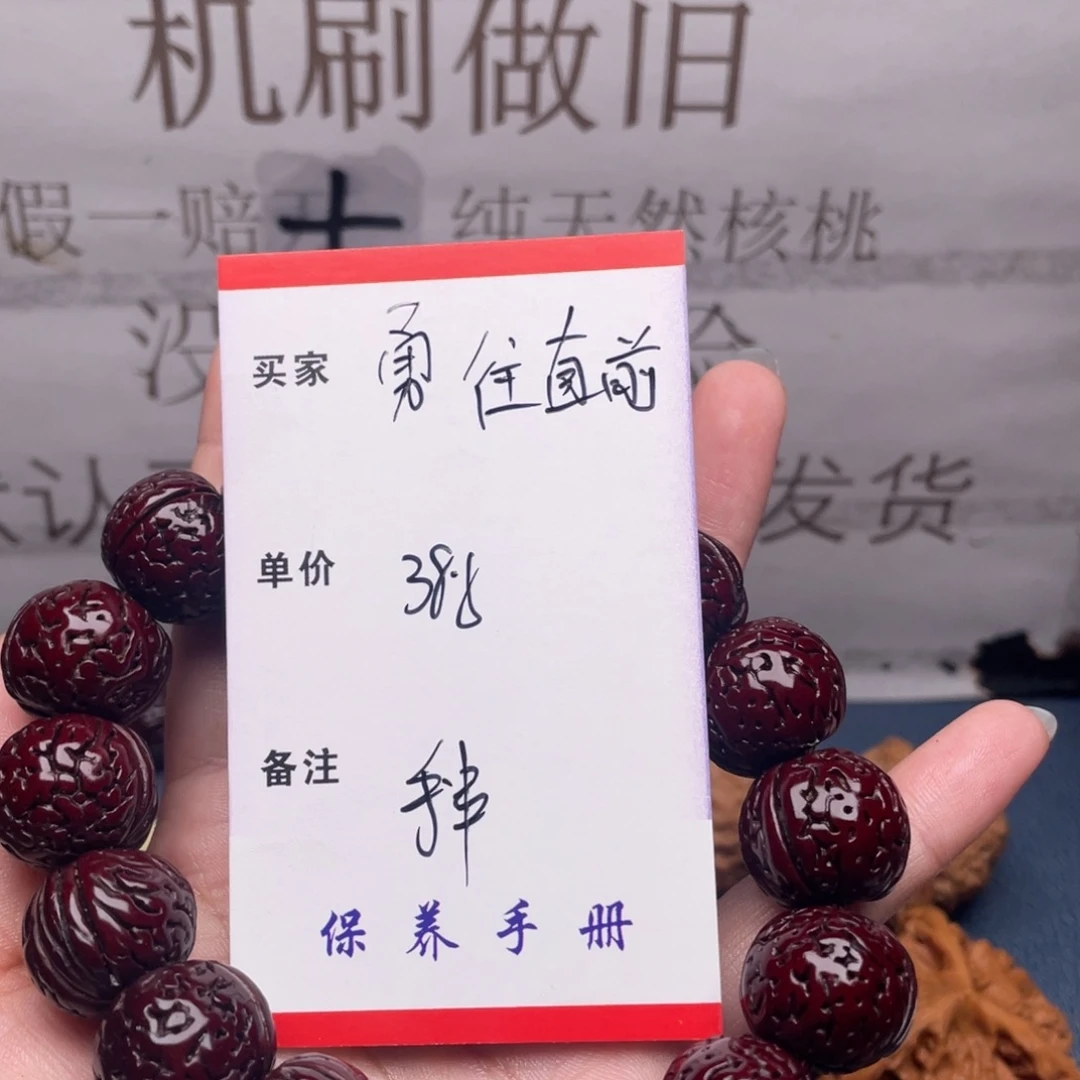 机刷做旧
假一赔十 纯天然核桃
没
默认 发货
买家 勇往直前
单价 38.8
备注 手串
保养手册